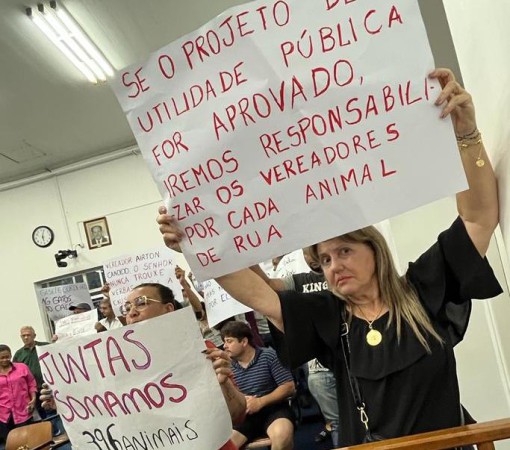 SE O PROJETO DE
UTILIDADE PÚBLICA
FOR APROVADO,
IREMOS RESPONSABILI-
ZAR OS VEREADORES
POR CADA ANIMAL
DE RUA
VEREADOR AIRTON
CANDIDO O SENHOR
NUNCA TROUXE
VERBA
JUNTAS
SOMAMOS
396 ANIMAIS
KINGS